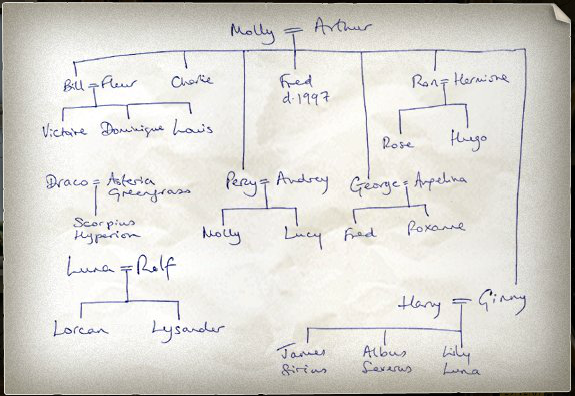 Molly = Arthur
Bill = Fleur
Charlie
Fred
d. 1997
Ron = Hermione
Victoire
Dominique
Louis
Rose
Hugo
Draco = Asteria
Greengrass
Scorpius
Hyperion
Percy = Audrey
George = Angelina
Molly
Lucy
Fred
Roxanne
Luna = Rolf
Lorcan
Lysander
Harry = Ginny
James
Sirius
Albus
Severus
Lily
Luna